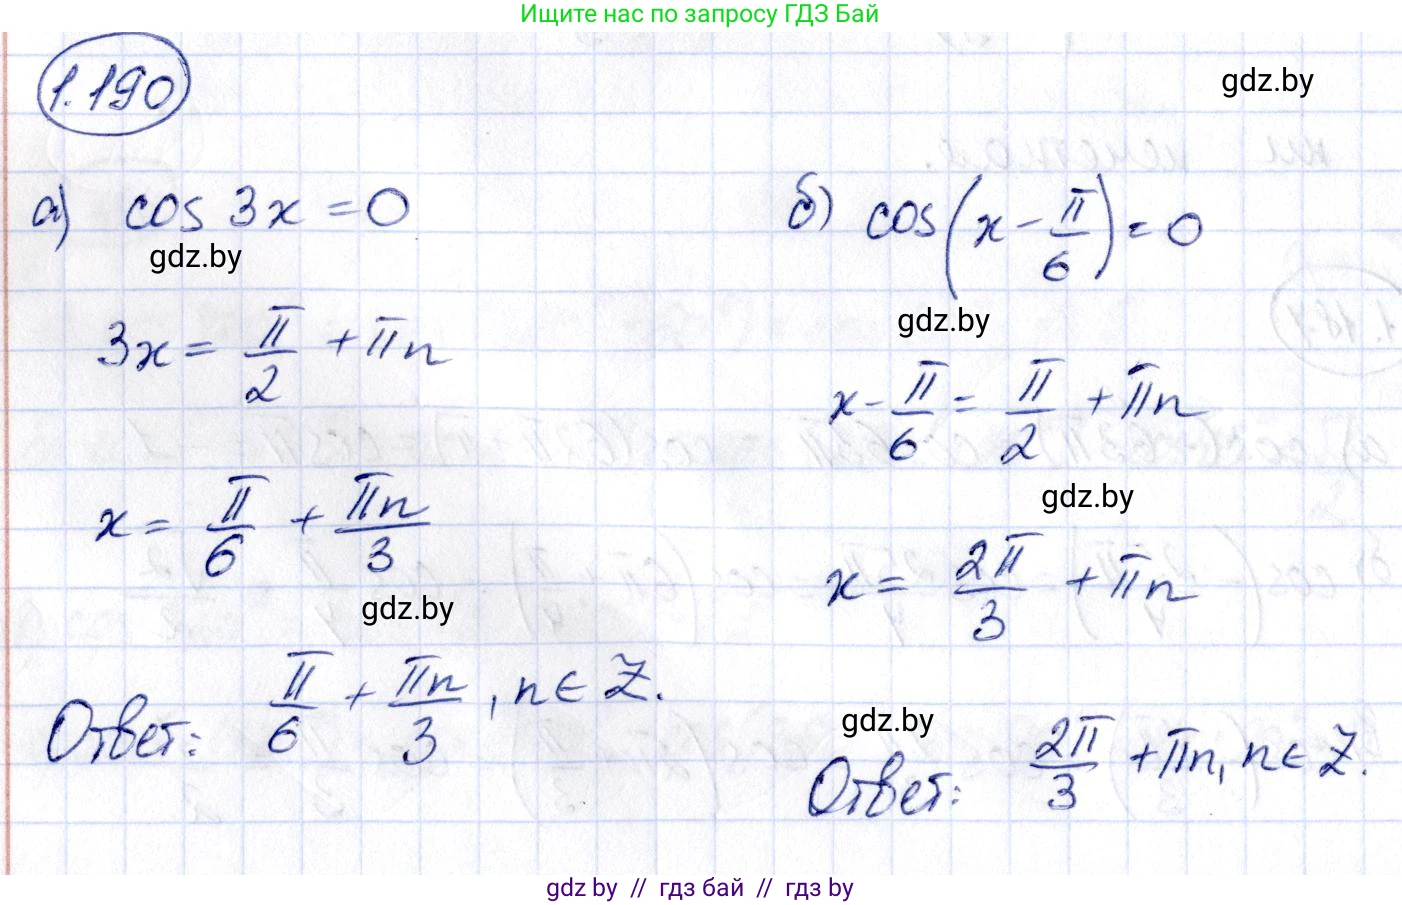 Ищите нас по запросу ГДЗ Бай
1.190
gdz.by
а) cos 3x = 0
gdz.by
3x = π/2 + πn
x = π/6 + πn/3
gdz.by
Ответ: π/6 + πn/3, n ∈ Z.
б) cos(x - π/6) = 0
gdz.by
x - π/6 = π/2 + πn
gdz.by
x = 2π/3 + πn
gdz.by
Ответ: 2π/3 + πn, n ∈ Z.
gdz.by // гдз бай // гдз by